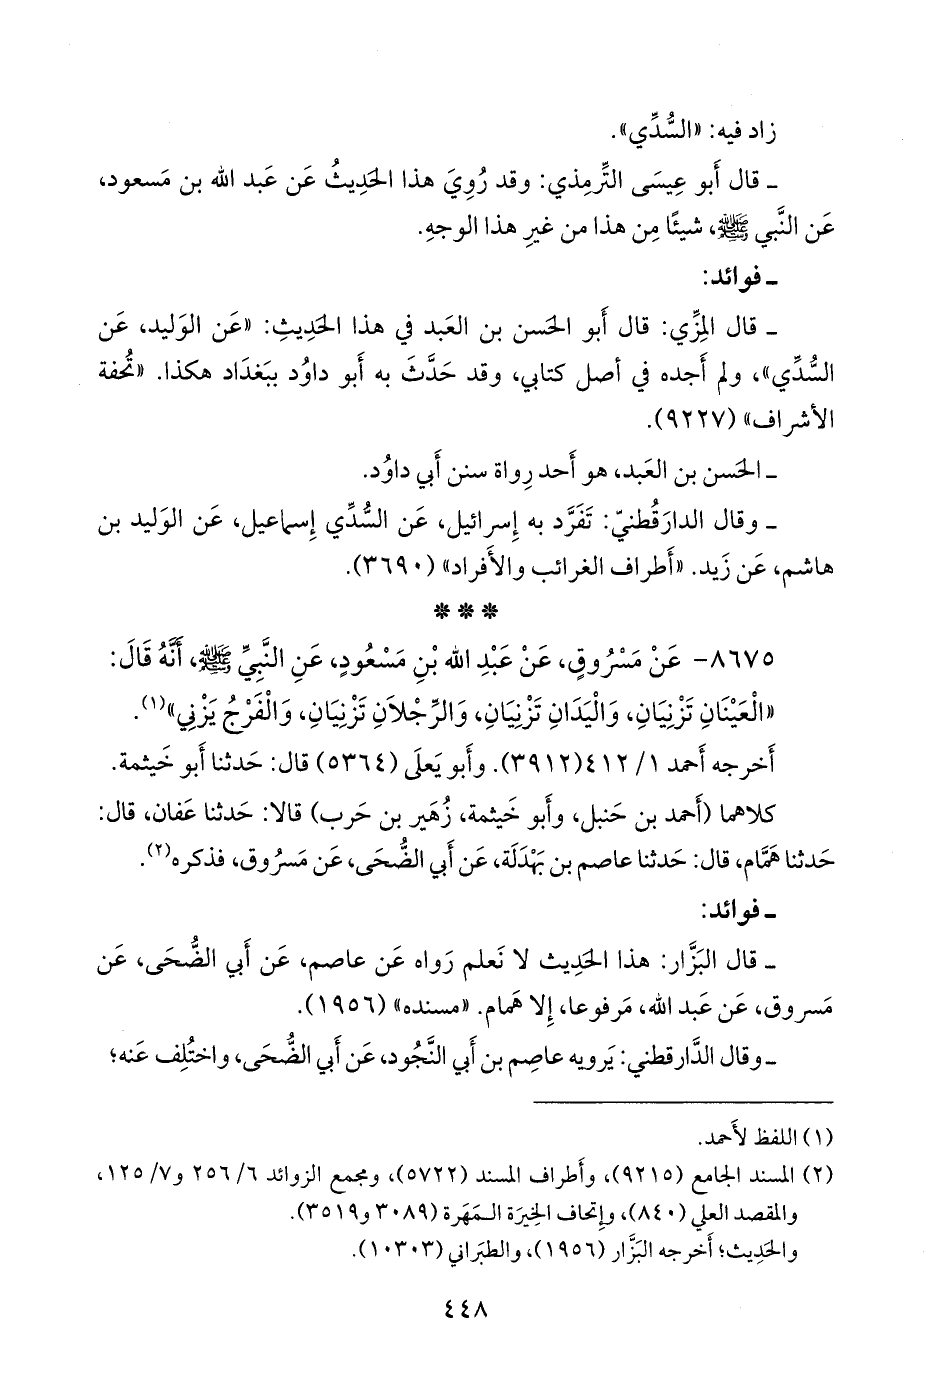 زاد فيه: «السُّدِّي».
ـ قال أَبو عِيسَى التِّرمِذي: وقد رُوِيَ هذا الحَدِيثُ عَن عَبد الله بن مَسعود،
عَن النَّبي ﷺ، شيئًا مِن هذا من غيرِ هذا الوجهِ.
ـ فوائد:
ـ قال المِزِّي: قال أَبو الحَسن بن العَبد في هذا الحَدِيثِ: «عَن الوَليد، عَن
السُّدِّي»، ولم أَجده في أصل كتابي، وقد حَدَّثَ به أَبو داوُد ببَغدَاد هكذا. «تُحفة
الأشراف» (٩٢٢٧).
ـ الحَسن بن العَبد، هو أَحد رِواة سنن أَبي داوُد.
ـ وقال الدارَقُطنيّ: تَفَرَّد به إِسرائيل، عَن السُّدِّي إِسماعيل، عَن الوَليد بن
هاشم، عَن زَيد. «أَطراف الغرائب والأَفراد» (٣٦٩٠).
***
٨٦٧٥- عَنْ مَسْرُوقٍ، عَنْ عَبْدِ الله بْنِ مَسْعُودٍ، عَنِ النَّبِيِّ ﷺ، أَنَّهُ قَالَ:
«الْعَيْنَانِ تَزْنِيَانِ، وَالْيَدَانِ تَزْنِيَانِ، وَالرِّجْلاَنِ تَزْنِيَانِ، وَالْفَرْجُ يَزْنِي»(١).
أَخرجه أَحمد ١/ ٤١٢(٣٩١٢). وأَبو يَعلَى (٥٣٦٤) قال: حَدثنا أَبو خَيثمة.
كلاهما (أَحمد بن حَنبل، وأَبو خَيثمة، زُهَير بن حَرب) قالا: حَدثنا عَفان، قال:
حَدثنا هَمَّام، قال: حَدثنا عاصم بن بَهْدَلَة، عَن أَبي الضُّحَى، عَن مَسرُوق، فذكره(٢).
ـ فوائد:
ـ قال البَزَّار: هذا الحَدِيث لا نَعلم رَواه عَن عاصم، عَن أَبي الضُّحَى، عَن
مَسروق، عَن عَبد الله، مَرفوعا، إِلا هَمام. «مسنده» (١٩٥٦).
ـ وقال الدَّارقطني: يَرويه عاصِم بن أَبي النَّجُود، عَن أَبي الضُّحَى، واختُلِف عَنه؛
(١) اللفظ لأَحمد.
(٢) المسند الجامع (٩٢١٥)، وأَطراف المسند (٥٧٢٢)، ومجمع الزوائد ٦/ ٢٥٦ و٧/ ١٢٥،
والمقصد العلي (٨٤٠)، وإِتحاف الخِيرَة الـمَهَرة (٣٠٨٩ و٣٥١٩).
والحَدِيث؛ أَخرجه البَزَّار (١٩٥٦)، والطبَراني (١٠٣٠٣).
٤٤٨